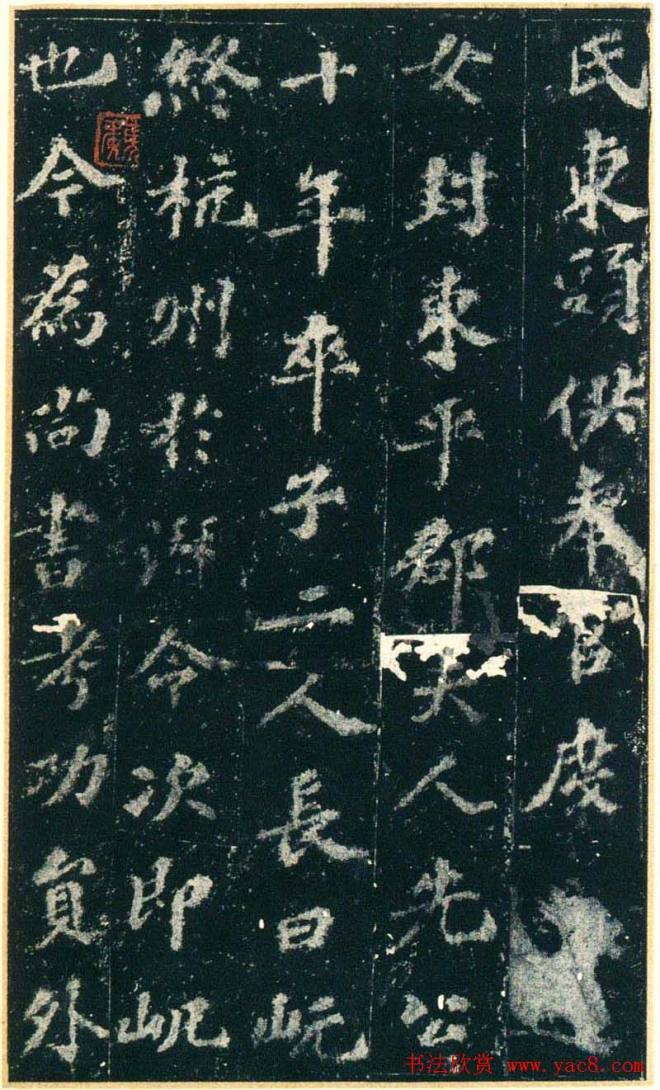 氏東頭供奉官度
女封東平郡夫人先公
十年卒子二人長曰岏
終杭州於潛令次即屼
也今為尚書考功員外
书法欣赏 www.yac8.com